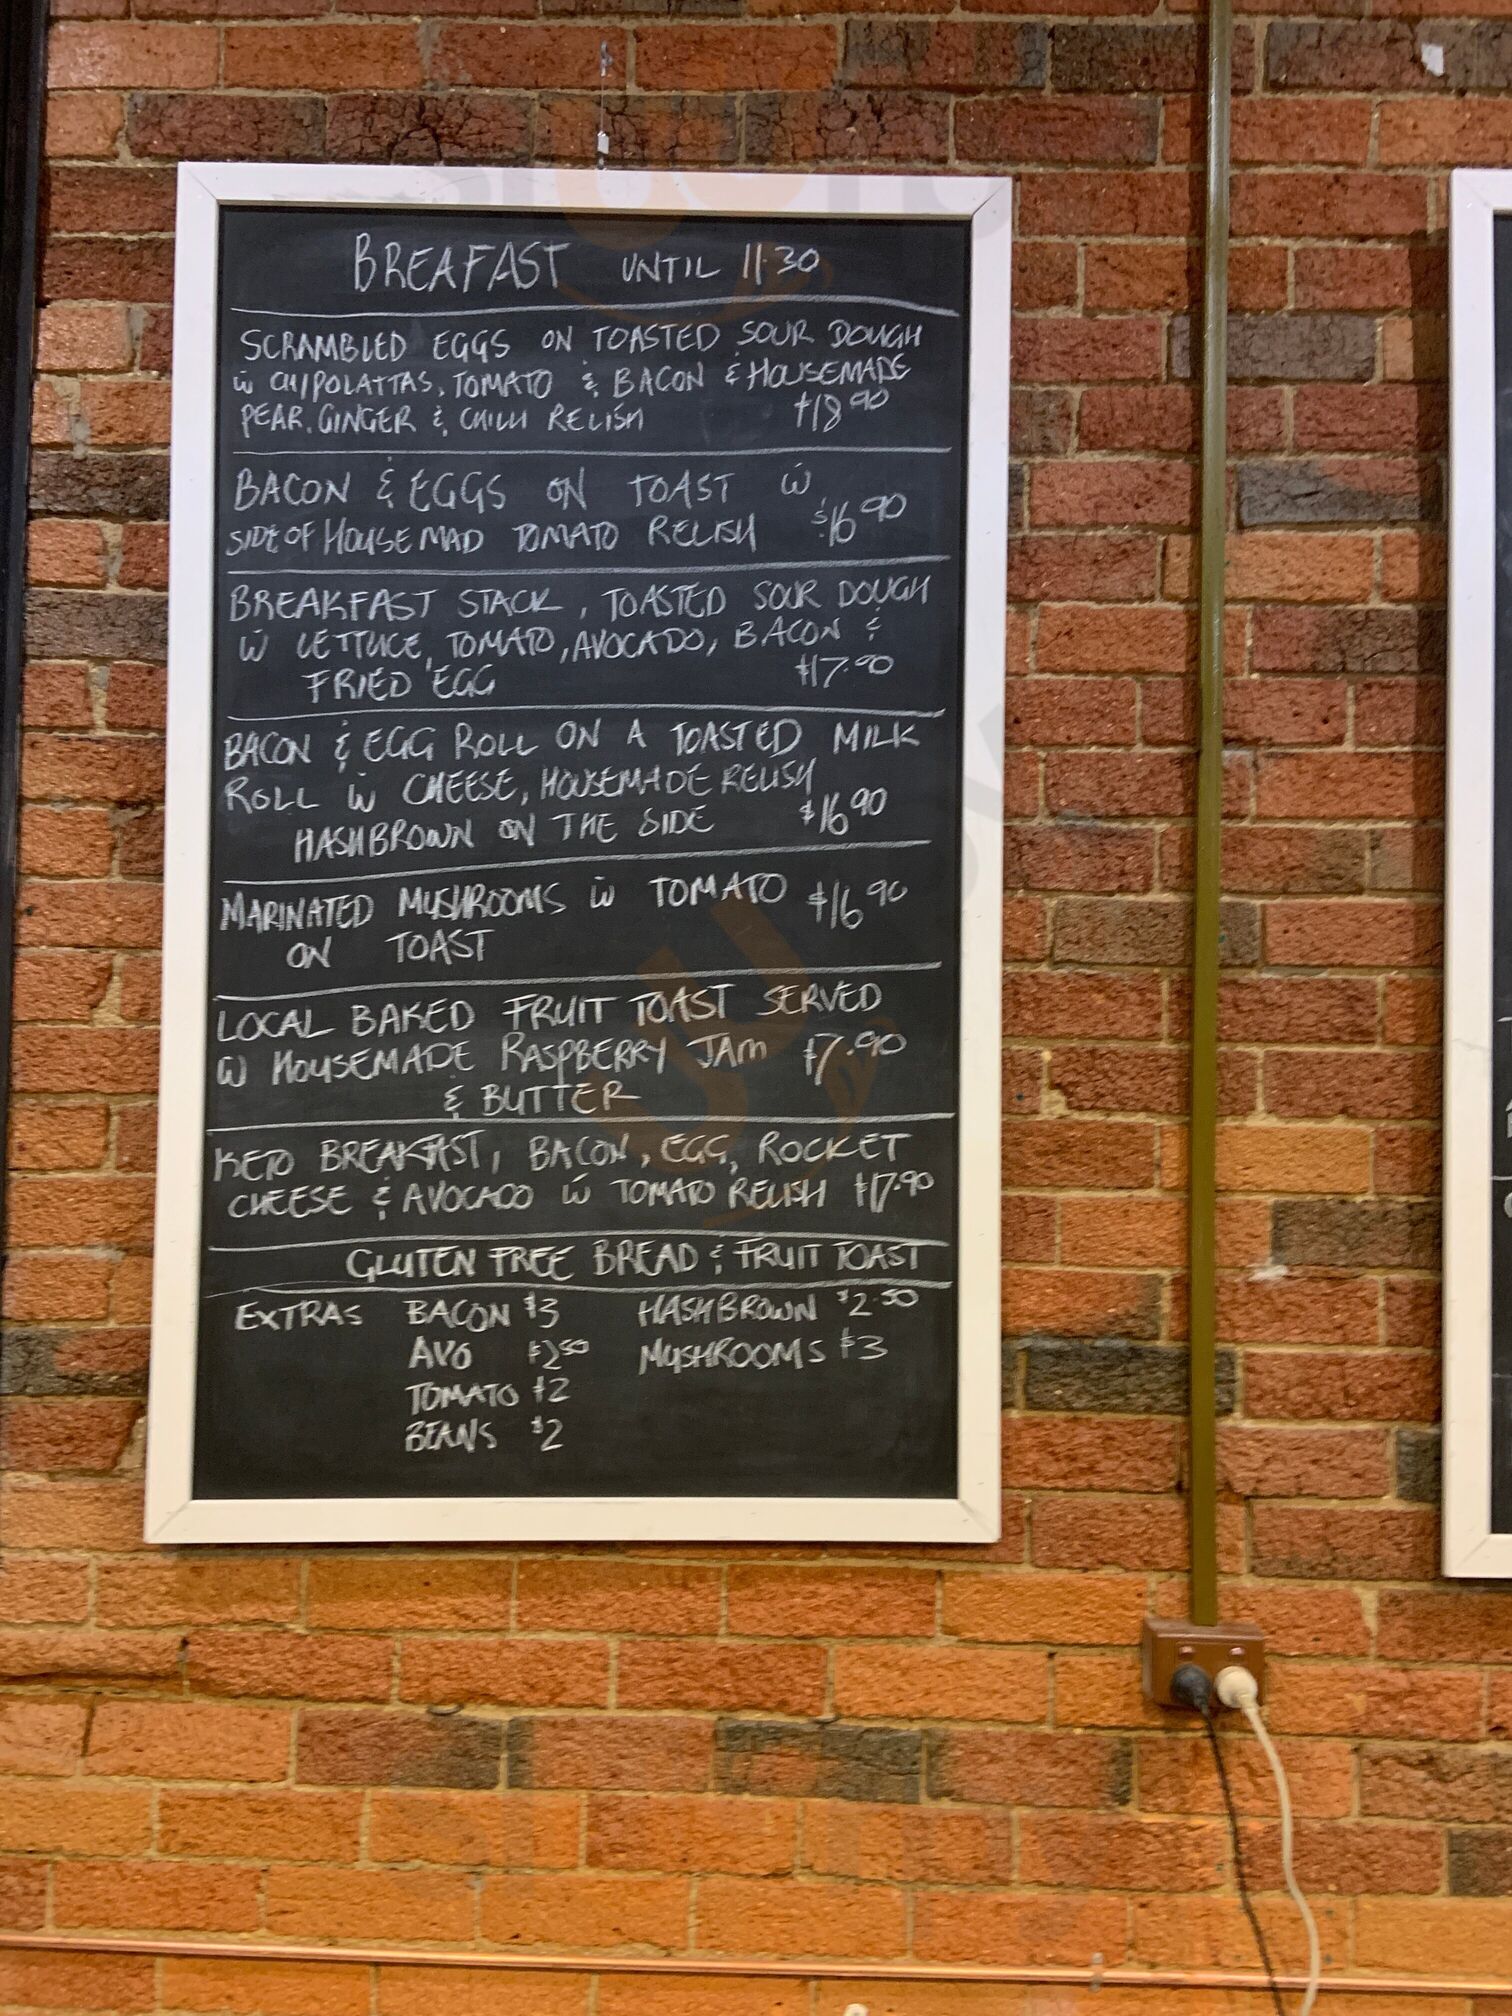 BREAFAST UNTIL 11.30
SCRAMBLED EGGS ON TOASTED SOUR DOUGH
w CHIPOLATTAS, TOMATO & BACON & HOUSEMADE
PEAR. GINGER & CHILLI RELISH $18 90
BACON & EGGS ON TOAST w
SIDE OF HOUSEMAD TOMATO RELISH $16 90
BREAKFAST STACK, TOASTED SOUR DOUGH
w LETTUCE, TOMATO, AVOCADO, BACON &
FRIED EGG $17.90
BACON & EGG ROLL ON A TOASTED MILK
ROLL w CHEESE, HOUSEMADE RELISH
HASHBROWN ON THE SIDE $16 90
MARINATED MUSHROOMS w TOMATO $16 90
ON TOAST
LOCAL BAKED FRUIT TOAST SERVED
w HOUSEMADE RASPBERRY JAM $7.90
& BUTTER
KETO BREAKFAST, BACON, EGG, ROCKET
CHEESE & AVOCADO w TOMATO RELISH $17.90
GLUTEN FREE BREAD & FRUIT TOAST
EXTRAS BACON $3 HASHBROWN $2.50
AVO $2 50 MUSHROOMS $3
TOMATO $2
BEANS $2